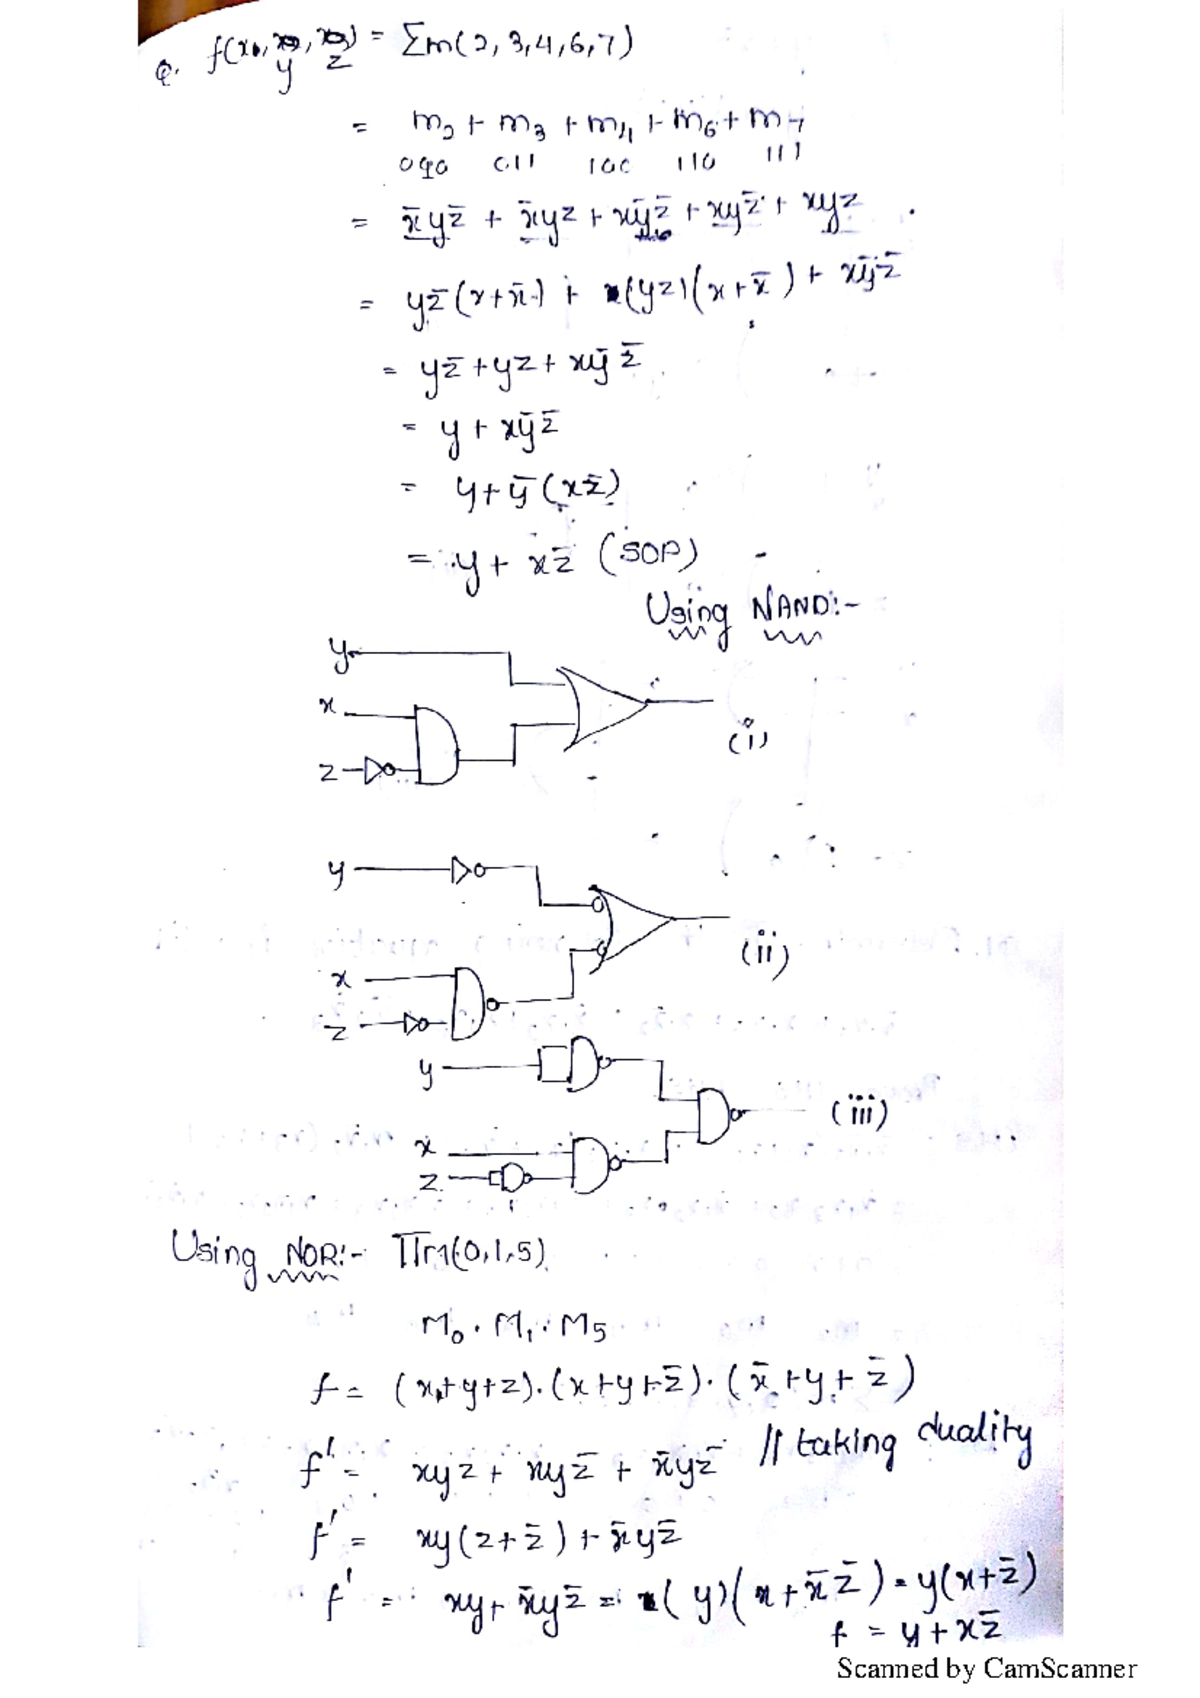 Q. f(x, y, z) = Σm(2, 3, 4, 6, 7)
= m₂ + m₃ + m₄ + m₆ + m₇
010 011 100 110 111
= x̄yz̄ + x̄yz + xȳz̄ + xyz̄ + xyz
= yz̄(x+x̄) + (yz)(x+x̄) + xȳz̄
= yz̄ + yz + xȳz̄
= y + xȳz̄
= y + ȳ(xz̄)
= y + xz̄ (SOP)
Using NAND:-
y
x
z
(i)
y
x
z
(ii)
y
x
z
(iii)
Using NOR:- ΠM(0,1,5)
M₀ . M₁ . M₅
f = (x+y+z).(x+y+z̄).(x̄+y+z̄)
f' = xyz + xyz̄ + x̄yz̄ // taking duality
f' = xy(z+z̄) + x̄yz̄
f' = xy + x̄yz̄ = (y)(x+x̄z̄) = y(x+z̄)
f = y + xz̄
Scanned by CamScanner